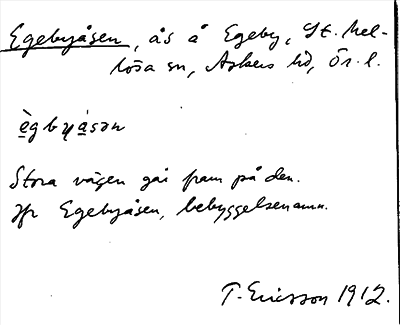 Egebyåsen, ås å Egeby, St. Mel-
lösa sn, Askers hd, Ör. l.
ègbyásən
Stora vägen går fram på den.
Jfr Egebyåsen, bebyggelsenamn.
T. Ericsson 1912.